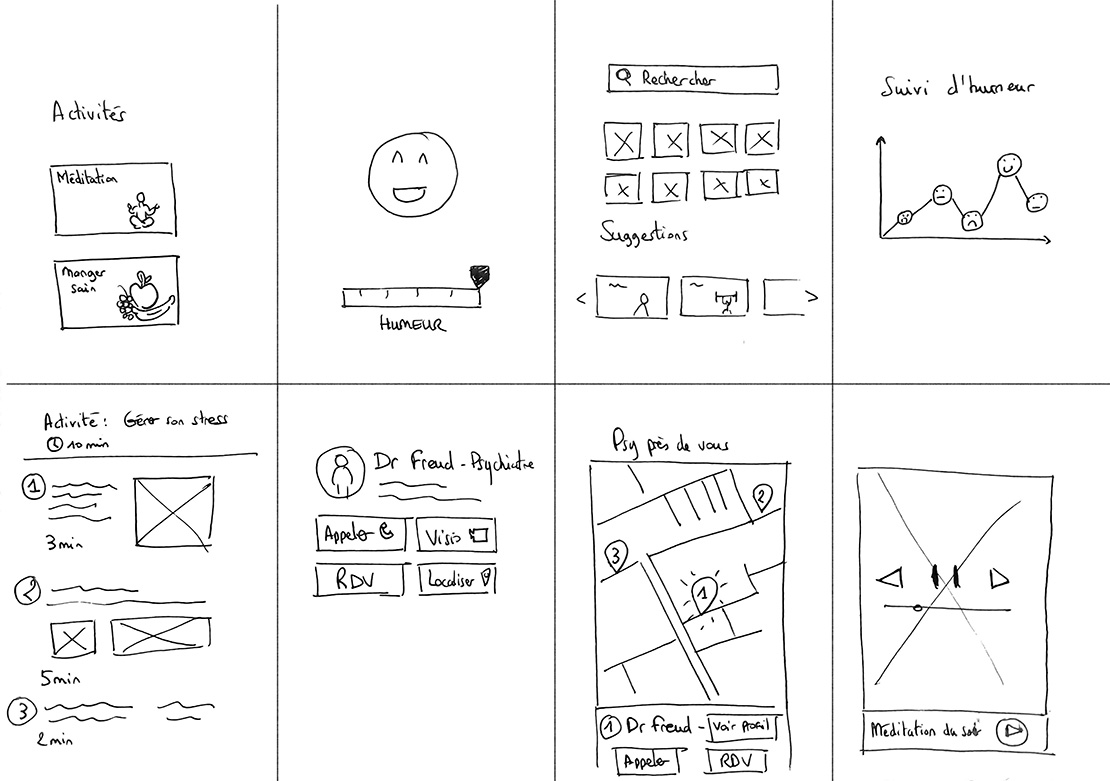 Activités
Méditation
Manger
sain
HUMEUR
Rechercher
Suggestions
Suivi d'humeur
Activité : Gérer son stress
10 min
1
3 min
2
5 min
3
2 min
Dr Freud - Psychiatre
Appeler
Visio
RDV
Localiser
Psy près de vous
2
3
1
1 Dr Freud - Voir Profil
Appeler
RDV
Méditation du soir